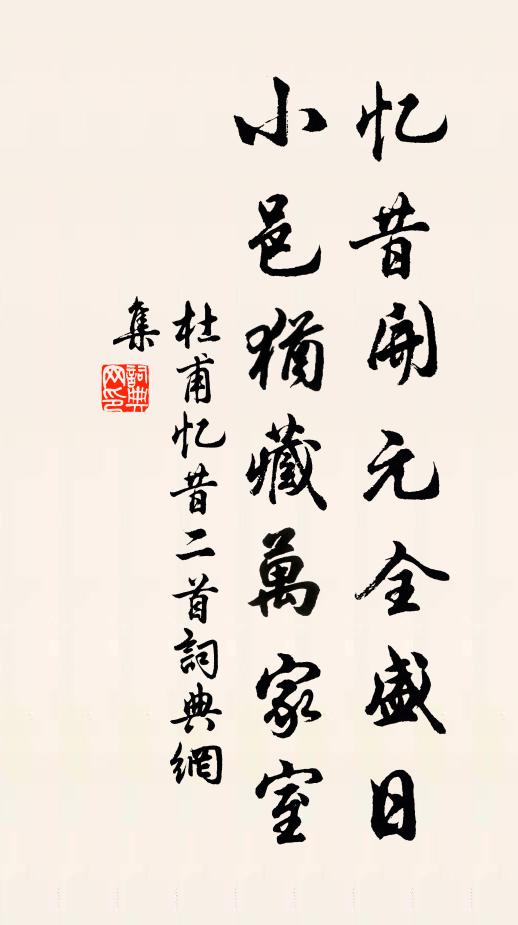 忆昔開元全盛日
小邑猶藏萬家室
杜甫忆昔二首詞典網
集
詞典
网印